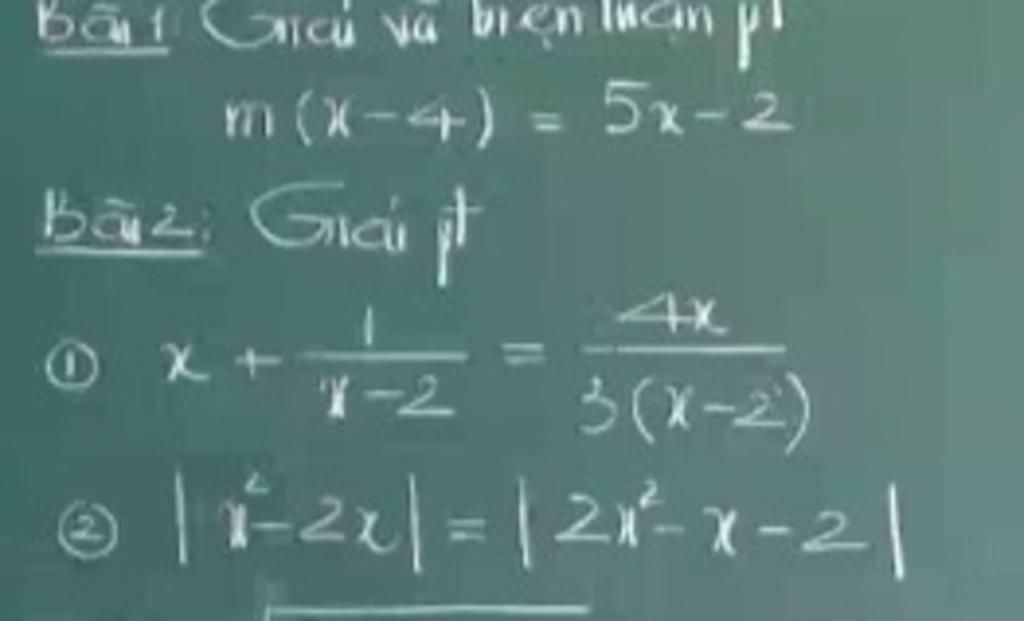 Bài 1 Giải và biện luận pt
m(x-4) = 5x-2
Bài 2: Giải pt
① x + 1/(x-2) = 4x/(3(x-2))
② |x²-2x| = |2x²-x-2|